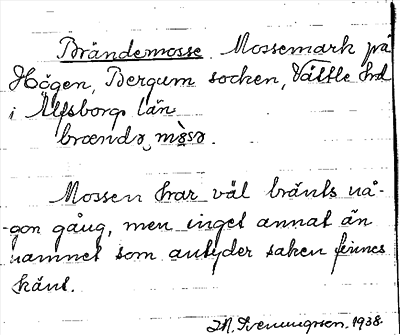 Brändemosse. Mossemark på
Högen, Bergum socken, Vättle hrd
i Älfsborgs län.
brœndə mòsə.
Mossen har väl bränts nå-
-gon gång, men inget annat än
namnet som antyder saken finnes
känt.
1938.